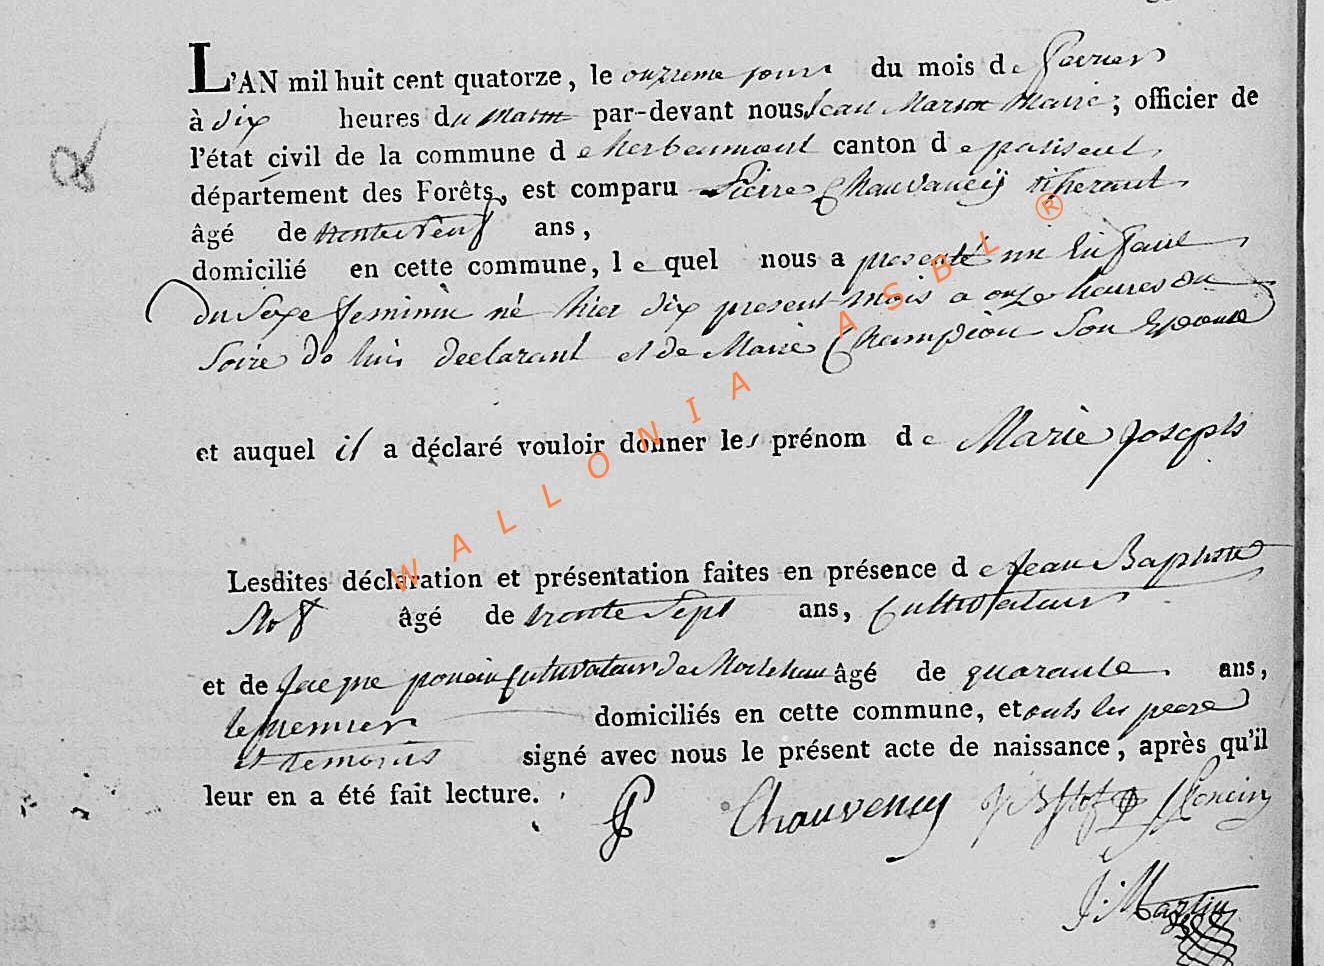 L'AN mil huit cent quatorze, le onzieme jour du mois de fevrier
à dix heures du matin par-devant nous Jean Martin Maire; officier de
l'état civil de la commune de herbeumont canton de paliseul,
département des Forêts, est comparu Pierre Chauvancÿ tiherant
âgé de trente neuf ans,
domicilié en cette commune, lequel nous a presenté un Enfant
du Sexe feminin né hier dix present mois a onze heures du
Soire de lui declarant et de Marie Champion Son Epouse
et auquel il a déclaré vouloir donner les prénom de Marie Joseph
Lesdites déclaration et présentation faites en présence de Jean Baptiste
Stof âgé de trente Sept ans, Cultivateur
et de Jacque poncin Cultivateur de Mortehan âgé de quarante ans,
le premier domiciliés en cette commune, et onts les peere
et temoins signé avec nous le présent acte de naissance, après qu'il
leur en a été fait lecture.
P Chauvency J B Stof J Poncin
J. Martin
WALLONIA ASBL ®